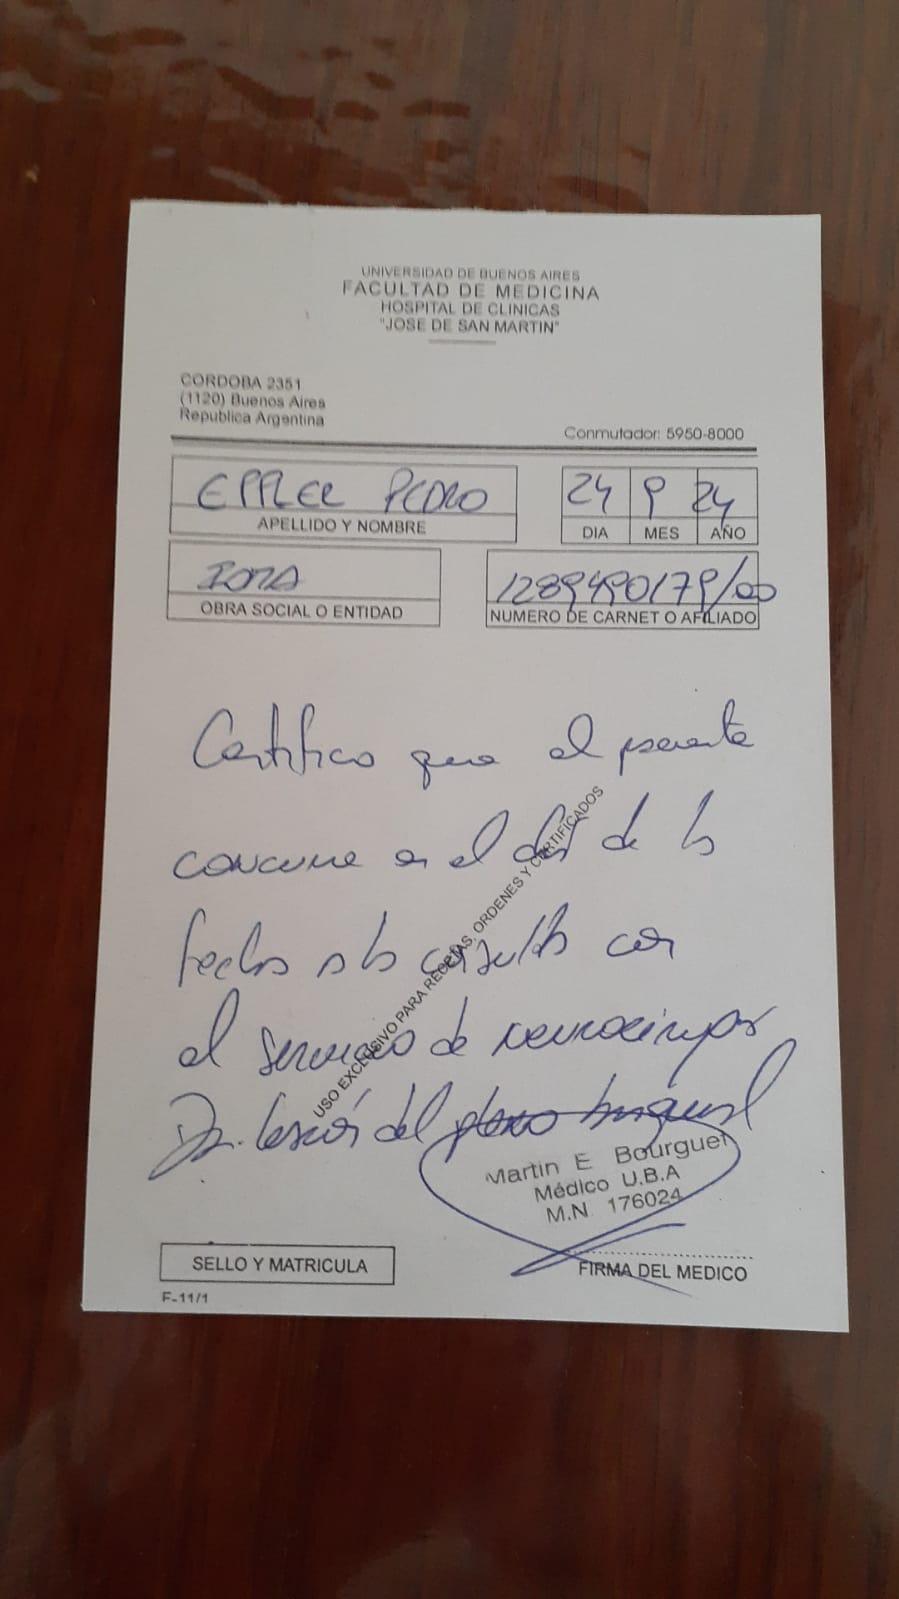 UNIVERSIDAD DE BUENOS AIRES
FACULTAD DE MEDICINA
HOSPITAL DE CLINICAS
"JOSE DE SAN MARTIN"
CORDOBA 2351
(1120) Buenos Aires
Republica Argentina
Conmutador: 5950-8000
EPPLER PEDRO
APELLIDO Y NOMBRE
24 9 24
DIA MES AÑO
IOMA
OBRA SOCIAL O ENTIDAD
1289490179/00
NUMERO DE CARNET O AFILIADO
Certifico que el presente
concurre en el día de la
fecha a la consulta con
el servicio de neurocirugía
Dr. lesión del plexo braquial
USO EXCLUSIVO PARA RECETAS, ORDENES Y CERTIFICADOS
Martin E Bourguet
Médico U.B.A
M.N 176024
SELLO Y MATRICULA
FIRMA DEL MEDICO
F-11/1